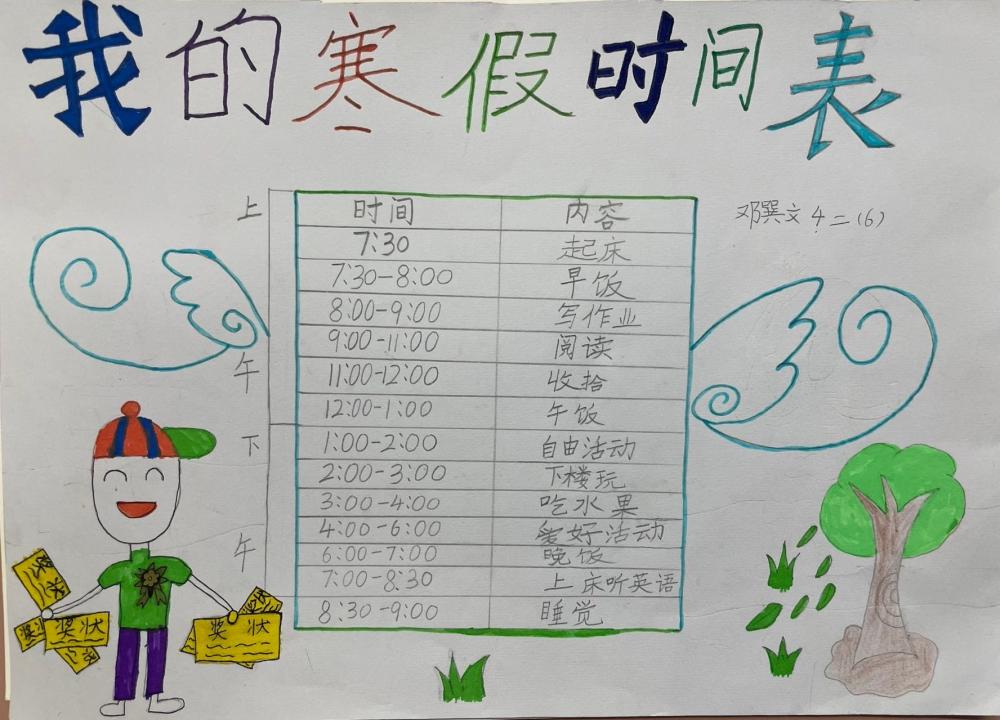 我的寒假时间表
邓巽文 4二(6)
上午
下午
时间 内容
7:30 起床
7:30-8:00 早饭
8:00-9:00 写作业
9:00-11:00 阅读
11:00-12:00 收拾
12:00-1:00 午饭
1:00-2:00 自由活动
2:00-3:00 下楼玩
3:00-4:00 吃水果
4:00-6:00 爱好活动
6:00-7:00 晚饭
7:00-8:30 上床听英语
8:30-9:00 睡觉
奖状
奖状
奖状